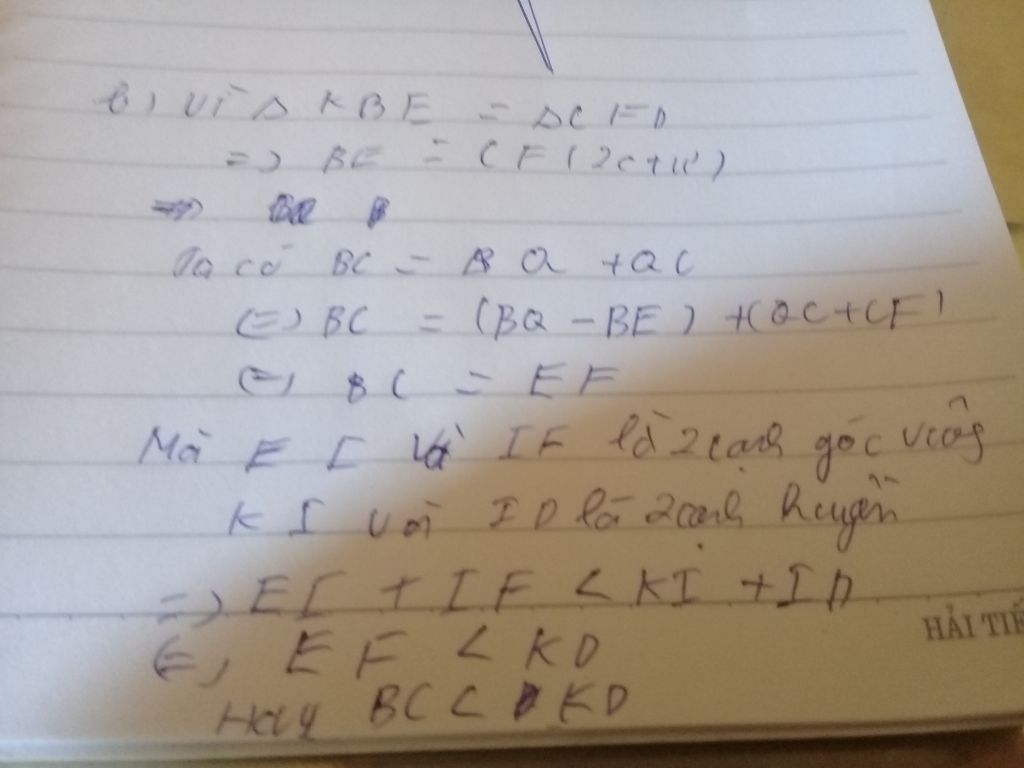 b) Vì Δ KBE = Δ CFD
=> BE = CF (2c+ư)
Ta có BC = BQ + QC
<=> BC = (BQ - BE) + (QC + CF)
<=> BC = EF
Mà EI và IF là 2 cạnh góc vuông
KI và ID là 2 cạnh huyền
=> EI + IF < KI + ID
<=> EF < KD
Hay BC < KD
HẢI TIẾ